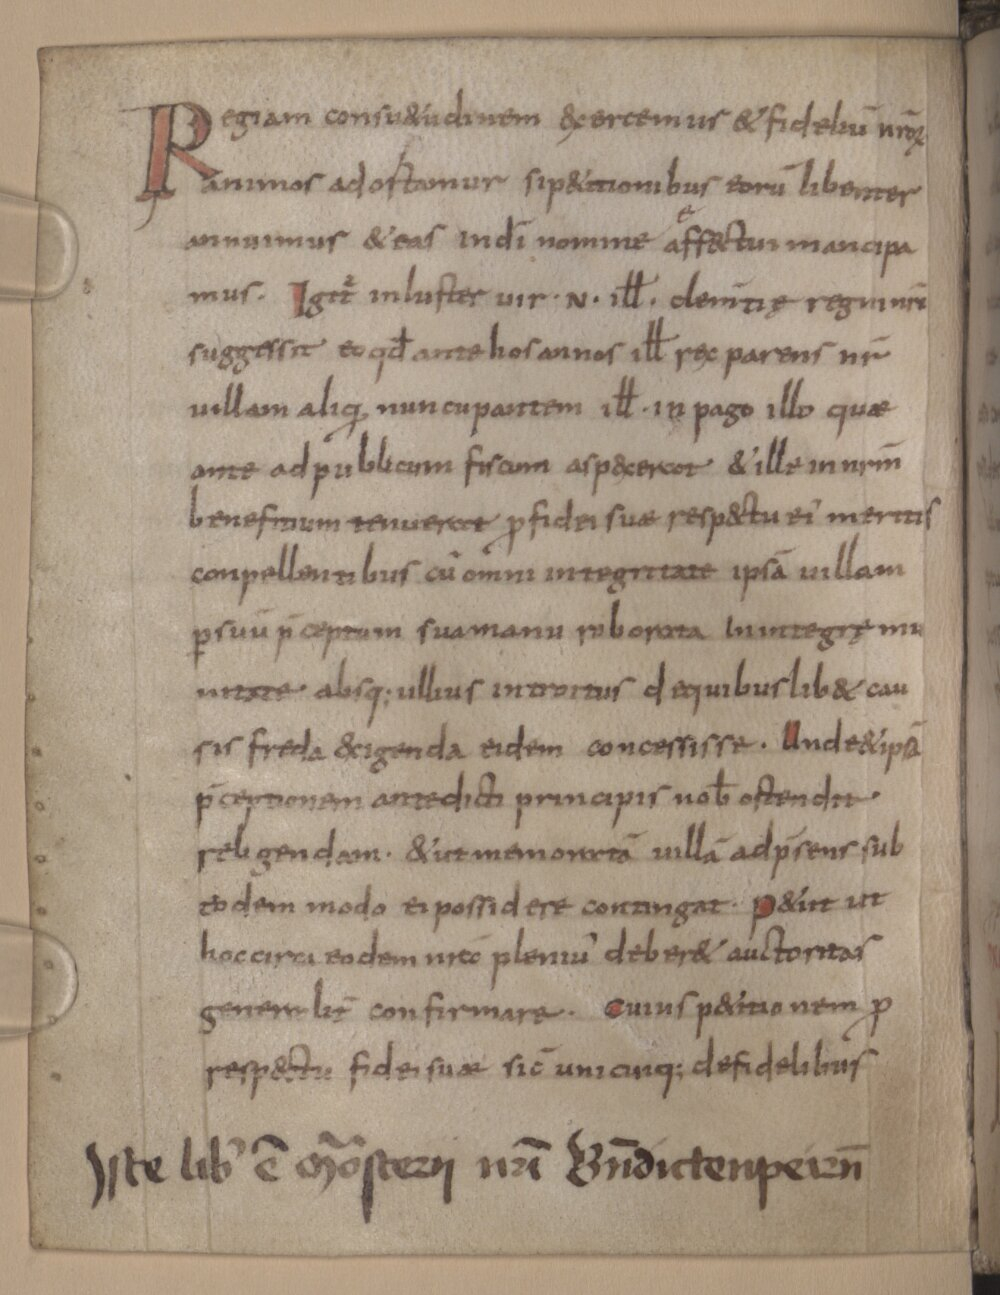 Regiam consu&udinem &xercemus &fideliū nr̄oꝝ
animos adortamur sip&itionibus eorū libenter
annuimus &eas indī nomine affectui mancipa
mus. Igit᷑ inluster uir · N · ill̄ · clemitię regni nr̄i
suggessit eo qđ ante hos annos ill̄ rex parens nr̄
uillam aliq; nuncupantem ill̄ · in pago illo quæ
ante ad publicum fiscum aspexerat &ille in nrm̄
benefitium tenuerat ꝓ fidei suæ resp&tu ei᾽ meritis
conpellentibus cū omni integritate ipsā uillam
ꝑ suū p̄ceptum sua manu roborata In integrę mu
nitate absq; ullius introitus dequibuslib& cau
sis freda &xigenda eidem concessisse. Unde&ipsā
p̄ceptionem antedicti principis nob̄ ostendit·
religendam· &ut memoratā uillā ad p̄sens sub
eodem modo ei possidere contingat· P&iit ut
hoc circa eodem nr̄ā pleniu᾽ deber& auctoritas
generalit̄ confirmare. Cuius p&itionem ꝓ
resp&tu fidei suæ sic̄ unicuiq; defidelibus
Iste lib᾽ ē mōsterij nr̄i Bn̄dictenpeirn̄